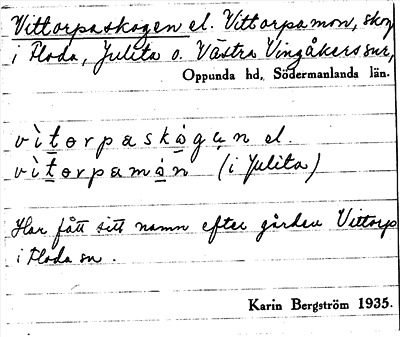 Vittorpaskogen el. Vittorpamon, skog
i Floda, Julita o. Västra Vingåkers snr,
Oppunda hd, Södermanlands län.
vìtorpaskógun el.
vìtorpamón (i Julita)
Har fått sitt namn efter gården Vittorp
i Floda sn.
Karin Bergström 1935.